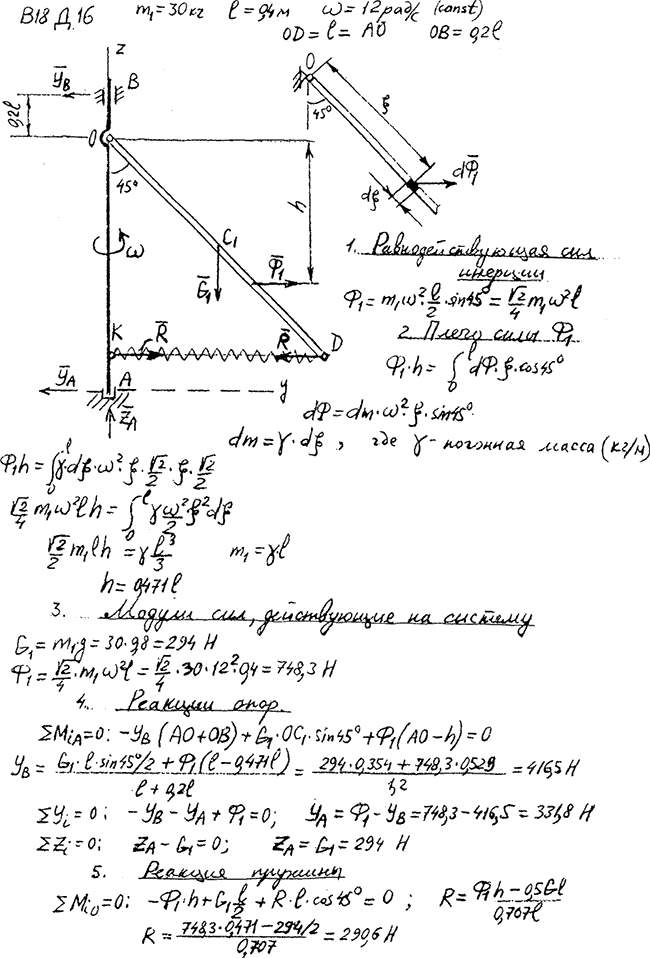 В18 Д.16 m₁=30кг l=0,4м ω=12рад/с (const)
OD=l=AO OB=0,2l
z
Y̅_B
B
0,2l
O
45°
h
ω
C₁
G̅₁
Φ̅₁
K
R̅
R̅
D
Y̅_A
A
y
Z̅_A
O
45°
ξ
dξ
dΦ̅₁
1. Равнодействующая сил
инерции
Φ₁=m₁ω²·l/2·sin45°=√2/4 m₁ω²l
2. Плечо силы Φ₁
Φ₁·h=∫₀ˡ dΦ·ξ·cos45°
dΦ=dm·ω²·ξ·sin45°
dm=γ·dξ, где γ-погонная масса (кг/м)
Φ₁h=∫₀ˡ γ·dξ·ω²·ξ·√2/2·ξ·√2/2
√2/4 m₁ω²lh=∫₀ˡ γ ω²/2 ξ²dξ
√2/2 m₁lh=γ l³/3 m₁=γl
h=0,471l
3. Модули сил, действующие на систему
G₁=m₁g=30·9,8=294 Н
Φ₁=√2/4·m₁ω²l=√2/4·30·12²·0,4=748,3 Н
4. Реакции опор.
ΣM_iA=0: -Y_B(AO+OB)+G₁·OC₁·sin45°+Φ₁(AO-h)=0
Y_B=(G₁·l·sin45°/2+Φ₁(l-0,471l))/(l+0,2l)=(294·0,354+748,3·0,529)/1,2=416,5 Н
ΣY_i=0; -Y_B-Y_A+Φ₁=0; Y_A=Φ₁-Y_B=748,3-416,5=331,8 Н
ΣZ_i=0; Z_A-G₁=0; Z_A=G₁=294 Н
5. Реакция пружины
ΣM_iO=0: -Φ₁·h+G₁ l/2+R·l·cos45°=0; R=(Φ₁h-0,5Gl)/0,707l
R=(748,3·0,471-294/2)/0,707=290,6 Н